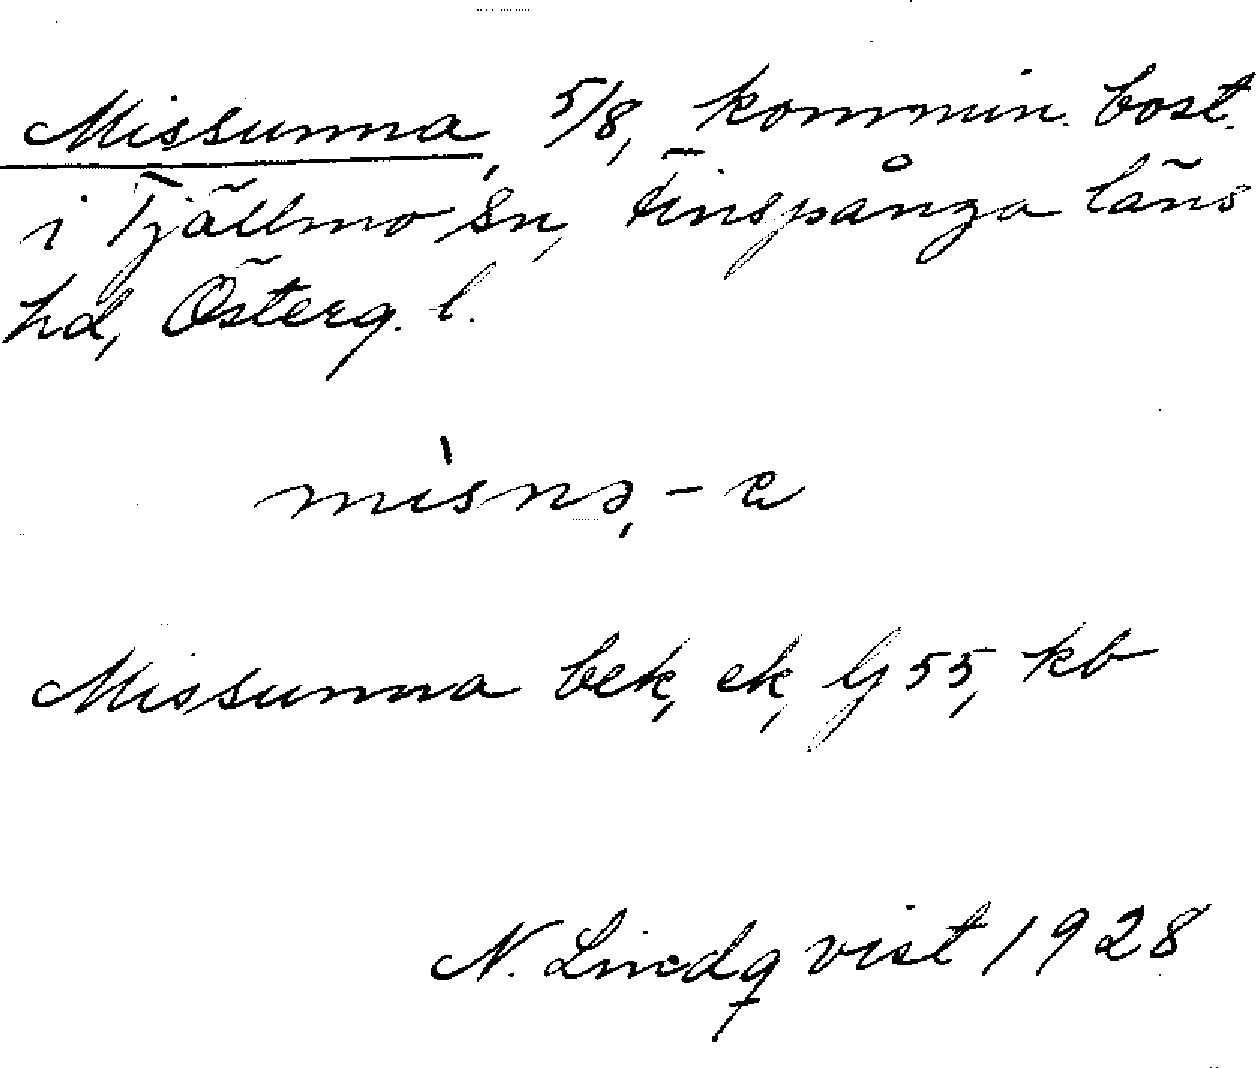 Missunna, 5/8, kommin. bost.
i Tjällmo sn, Finspånga läns
hd, Österg. l.
mı̀snə, -a
Missunna bek, ek, lj 55, kb
N. Lindqvist 1928